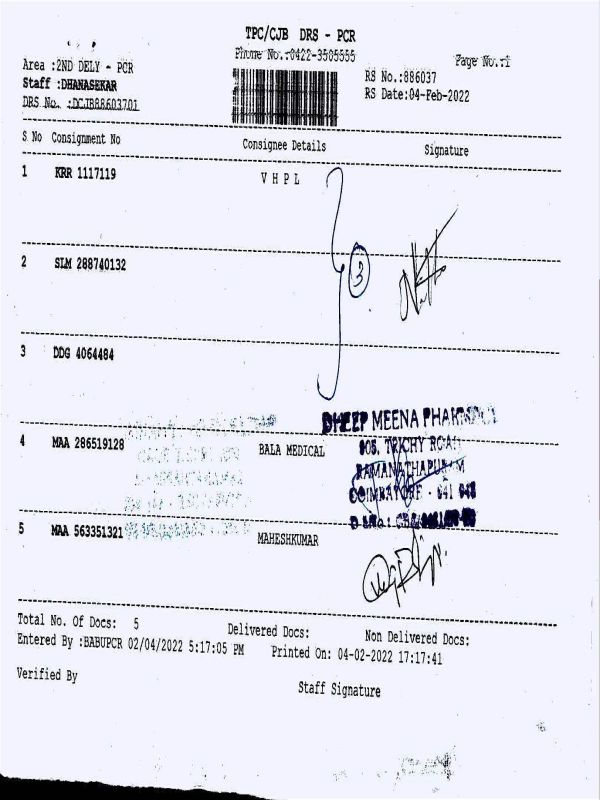 TPC/CJB DRS - PCR
Phone No.:0422-3505555
Page No.:1
Area :2ND DELY - PCR
RS No.:886037
Staff :DHANASEKAR
RS Date:04-Feb-2022
DRS No. :DCJB88603701
S No Consignment No Consignee Details Signature
1 KRR 1117119 V H P L
3
2 SLM 288740132
3 DDG 4064484
DHEEP MEENA PHARMACY
4 MAA 286519128 BALA MEDICAL
TRICHY ROAD
RAMANATHAPURAM
COIMBATORE - 641 045
5 MAA 563351321 MAHESHKUMAR
Total No. Of Docs: 5 Delivered Docs: Non Delivered Docs:
Entered By :BABUPCR 02/04/2022 5:17:05 PM Printed On: 04-02-2022 17:17:41
Verified By Staff Signature